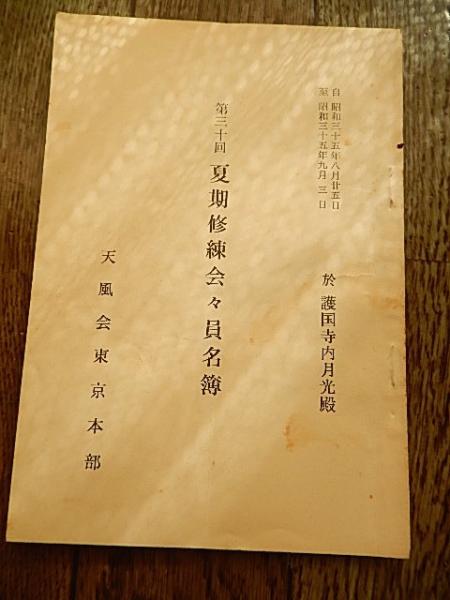 自 昭和三十五年八月廿五日
至 昭和三十五年九月三日
於 護国寺内月光殿
第三十回 夏期修練会々員名簿
天風会東京本部